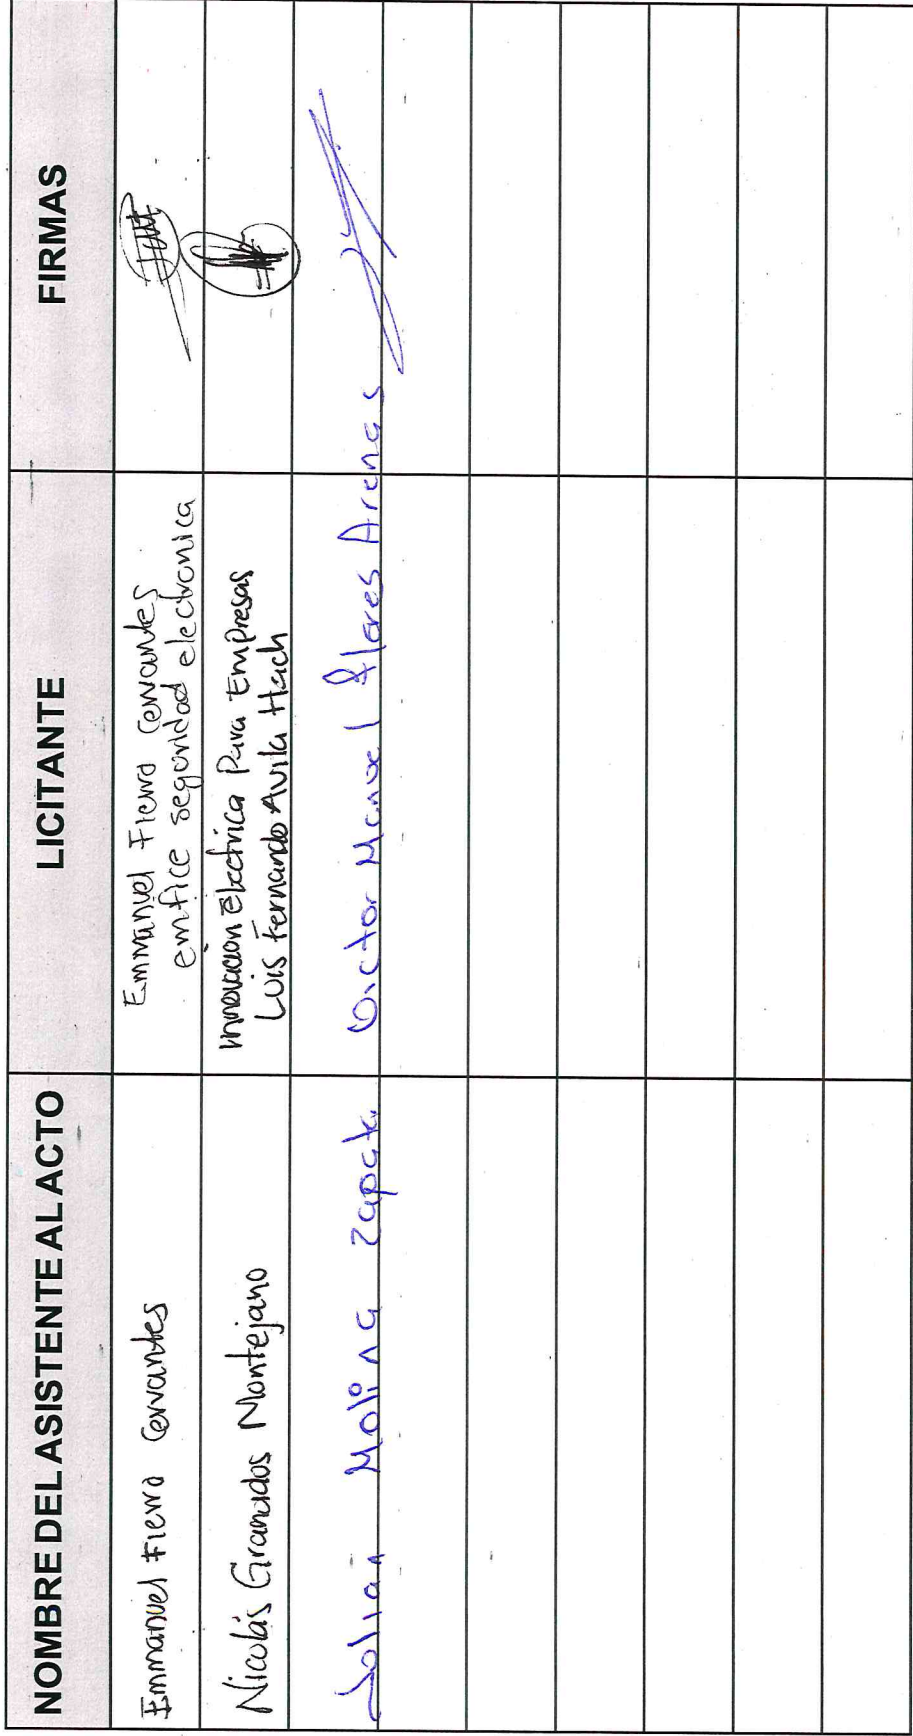 NOMBRE DEL ASISTENTE AL ACTO
LICITANTE
FIRMAS
Emmanuel Fierro Cervantes
Emmanuel Fierro Cervantes
emfice seguridad electronica
Nicolás Granados Montejano
innovación Eléctrica Para Empresas
Luis Fernando Avila Hach
Julian Molina Zapata
Victor Manuel flores Arenas